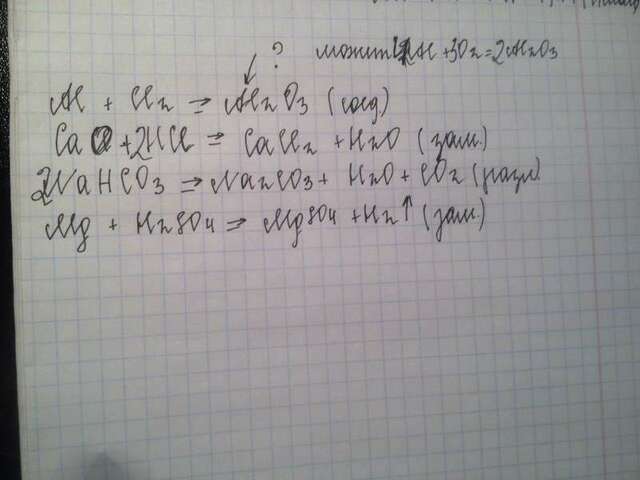 ? может 4Al + 3O2 = 2Al2O3
Al + Cl2 => Al2O3 (соед)
CaO + 2HCl => CaCl2 + H2O (зам.)
2NaHCO3 => Na2CO3 + H2O + CO2 (разл)
Mg + H2SO4 => MgSO4 + H2↑ (зам.)